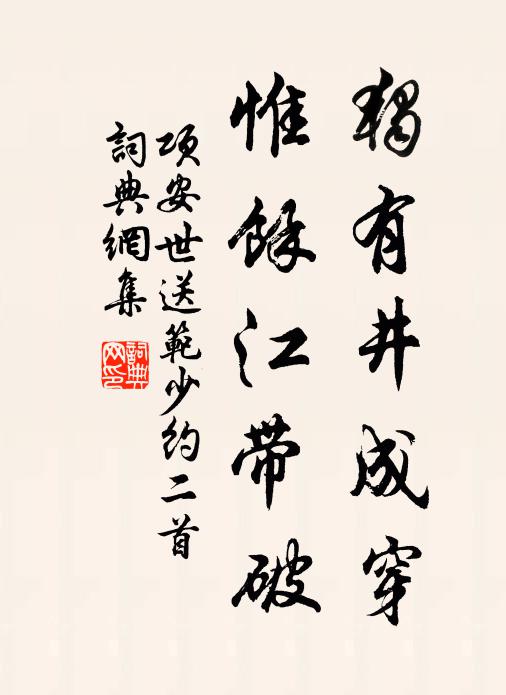 獨有井成穿
惟餘江带破
项安世送範少约二首
詞典網集
詞典網印